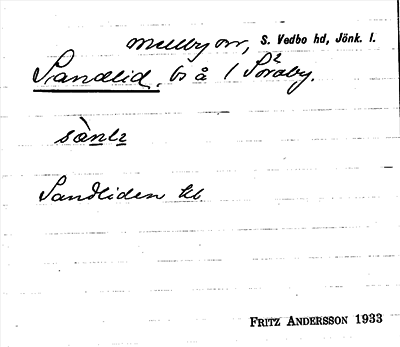 Mellby sn, S. Vedbo hd, Jönk. l.
Sandlid, ts å 1 Söraby.
Sandliden kb.
FRITZ ANDERSSON 1933